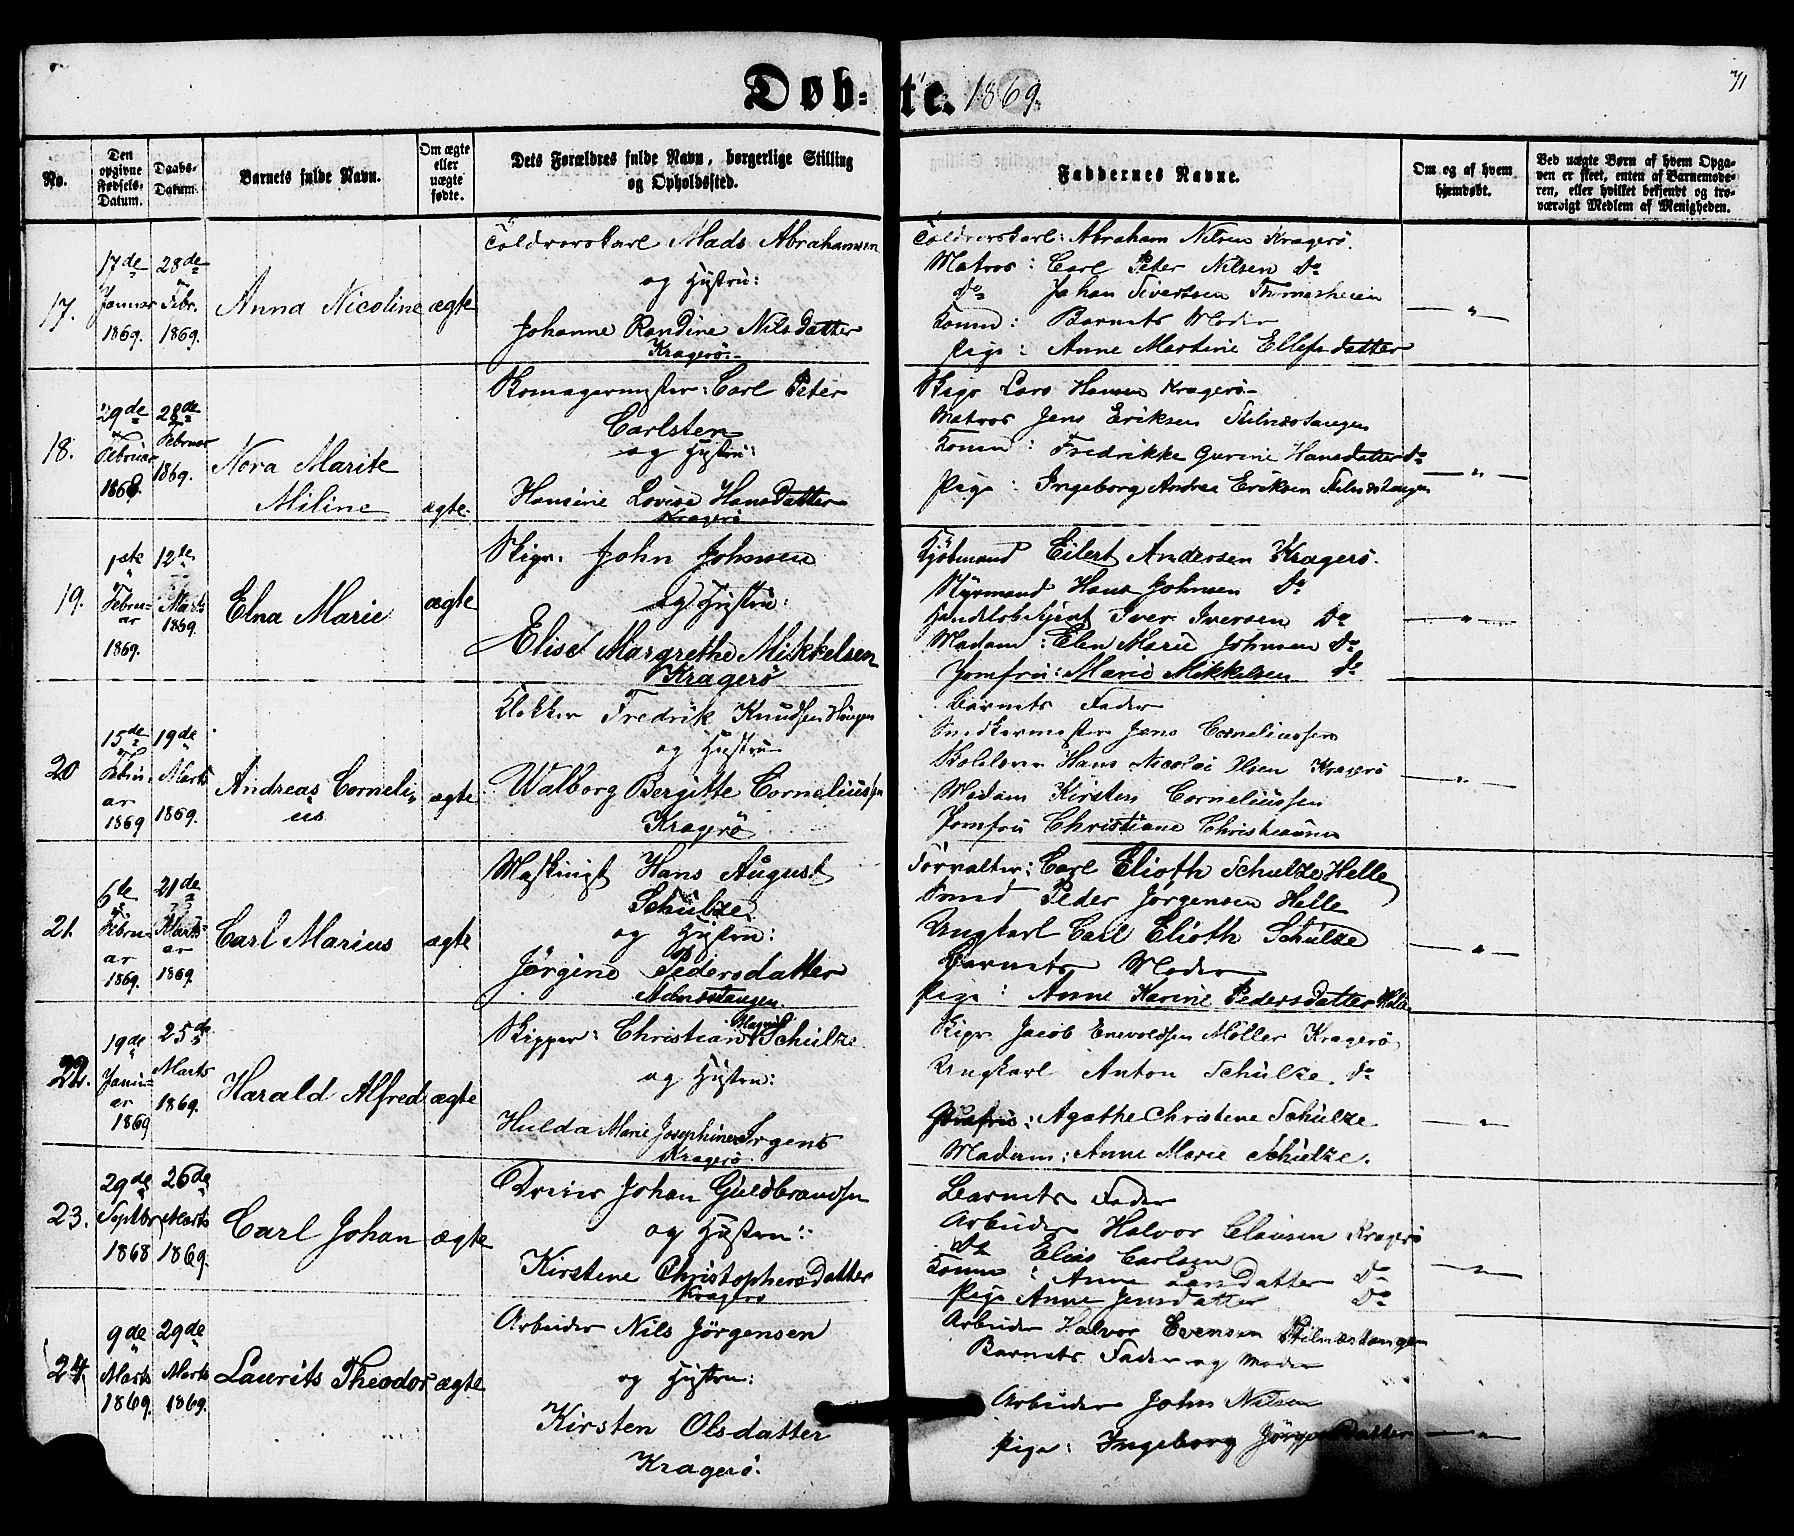 Døbte. 1869.
71
No.
Den opgivne Fødsels-Datum.
Daabs-Datum.
Barnets fulde Navn.
Om ægte eller uægte fødte.
Dets Forældres fulde Navn, borgerlige Stilling og Opholdssted.
Faddernes Navne.
Om og af hvem hjemdøbt.
Ved uægte Børn af hvem Opgaven er skeet, enten af Barnemoderen, eller hvilket bekjendt og troværdigt Medlem af Menigheden.
17.
17de Januar 1869.
28de Febr. 1869.
Anna Nicoline
ægte
Toldrorskarl Mads Abrahamsen
og Hustru:
Johanne Randine Nilsdatter
Kragerö
Toldrorskarl: Abraham Nilsen Kragerö.
Matros: Carl Peter Nilsen do
do Johan Sivertsen
Konen: Barnets Moder
Pige: Anne Martine Ellefsdatter
— " —
18.
29de Februar 1868.
28de Februar 1869.
Nora Marite
Miline
ægte.
Skomagermester: Carl Peter
Carlsten
og Hustru:
Hansine Lovise Hansdatter
Kragerö
Skipr Lars Hansen Kragerö
Matros Jens Eriksen Stilnæstangen
Konen: Fredrikke Gurine Hansdatter do
Pige: Ingeborg Andrea Eriksen Stilnæstangen
— " —
19.
1ste Februar 1869.
12te Marts 1869.
Elna Marie
ægte
Skipr. John Johnsen
og Hustru:
Elise Margrethe Mikkelsen
Kragerö
Kjöbmand Eilert Andersen Kragerö.
Styrmand Hans Johnsen do
Handelsbetjent Iver Iversen do
Madam: Elen Marie Johnsen do
Jomfru: Marie Mikkelsen do
— " —
20
15de Februar 1869
19de Marts 1869.
Andreas Cornelius
ægte
Klokker Fredrik Knudsen Haugen
og Hustru
Walborg Bergitte Corneliussen
Kragerö
Barnets Fader
Snedkermester Jens Corneliussen
Hans Nicolai Olsen Kragerö
Madam Kirsten Corneliussen
Jomfru Christiane Christiansen
— " —
21.
6te Februar 1869.
21de Marts 1869.
Carl Marius
ægte
Maskinist Hans August
Schulze
og Hustru:
Jørgine Pedersdatter
Stilnæstangen.
Forvalter: Carl Elioth Schulze Helle
Smed Peder Jørgensen Helle
Ungkarl Carl Elioth Schulze
Barnets Moder
Pige: Anne Karine Pedersdatter Helle
— " —
22.
19de Januar 1869
25de Marts 1869.
Harald Alfred
ægte
Skipper: Christian Magnus Schulze
og Hustru:
Hulda Marie Josephine Irgens
Kragerö.
Skipr Jacob Enevoldsen Möller Kragerö
Ungkarl Anton Schulze. do
Jomfru: Agathe Christine Schulze
Madam: Anne Marie Schulze.
— " —
23.
29de Septbr 1868
26de Marts 1869.
Carl Johan
ægte
Dreier Johan Guldbrandsen
og Hustru:
Kirstene Christophersdatter
Kragerö
Barnets Fader
Arbeider Halvor Clausen Kragerö
do Elias Carlsen
Konen: Anne Larsdatter do
Pige Anne Jensdatter do
— " —
24.
9de Marts 1869.
29de Marts 1869.
Laurits Theodor
ægte
Arbeider Nils Jörgensen
og Hustru:
Kirsten Olsdatter
Kragerö.
Arbeider Halvor Evensen Stilnæstangen
Barnets Fader og Moder
Arbeider John Nilsen
Pige: Ingeborg Jörgensdatter
— " —